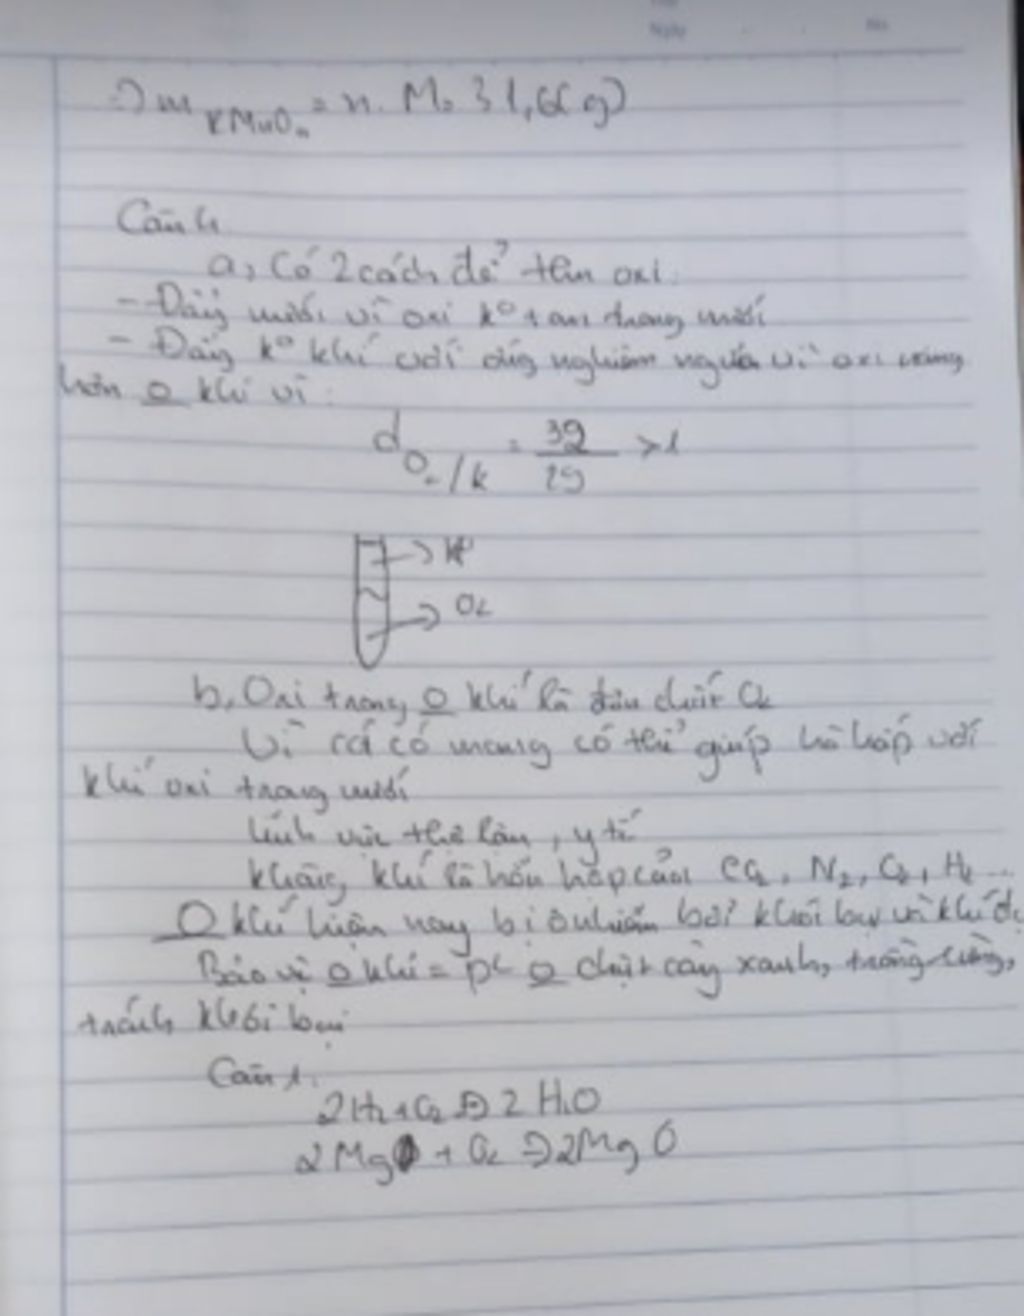 => m KMnO4 = n. M = 31,6(g)
Câu 4
a, Có 2 cách để thu oxi
- Đẩy nước vì oxi ko tan trong nước
- Đẩy ko khí với ống nghiệm ngửa vì oxi nặng
hơn o khí vì:
d O2/k = 32/29 >1
-> kk
-> O2
b, Oxi trong o khí là đơn chất O2
Vì cá có mang có thể giúp hô hấp với
khí oxi trong nước
lĩnh vực thợ lặn, y tế
không khí là hỗn hợp của CO2, N2, O2, H2...
O khí hiện nay bị ô nhiễm bởi khói bụi và khí
Bảo vệ o khí = o chặt cây xanh, trồng rừng,
tránh khói bụi
Câu 1.
2H2 + O2 => 2H2O
2Mg + O2 => 2MgO